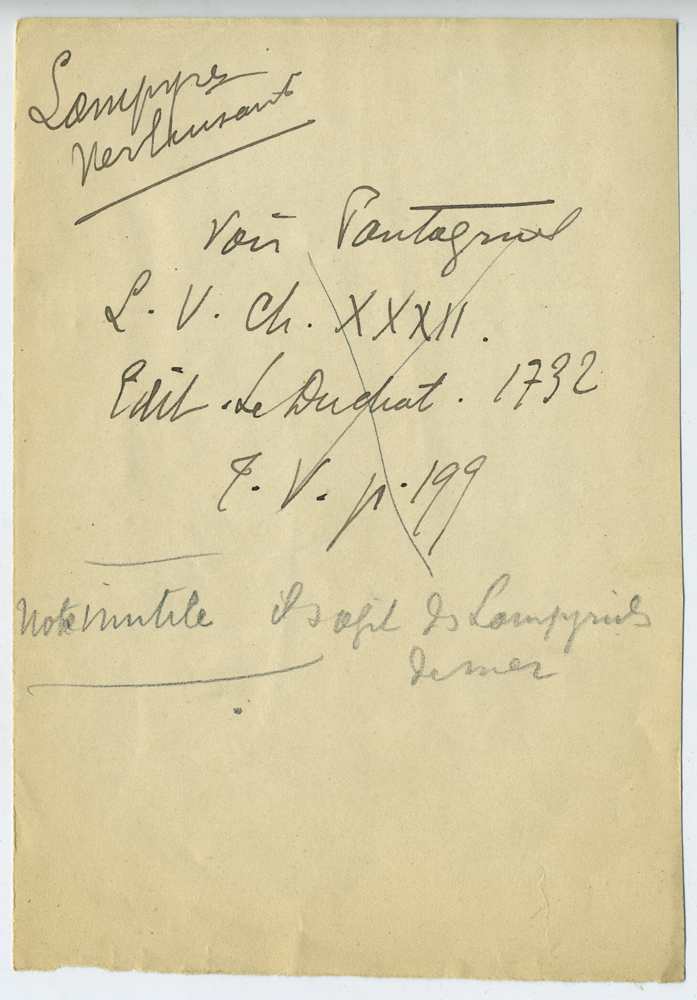 Lampyres
Verluisants
Voir Pantagruel
L. V. Ch. XXXII.
Edit. Le Duchat. 1732
T. V. p. 199
Note inutile Il s'agit des Lampyrides
de mer